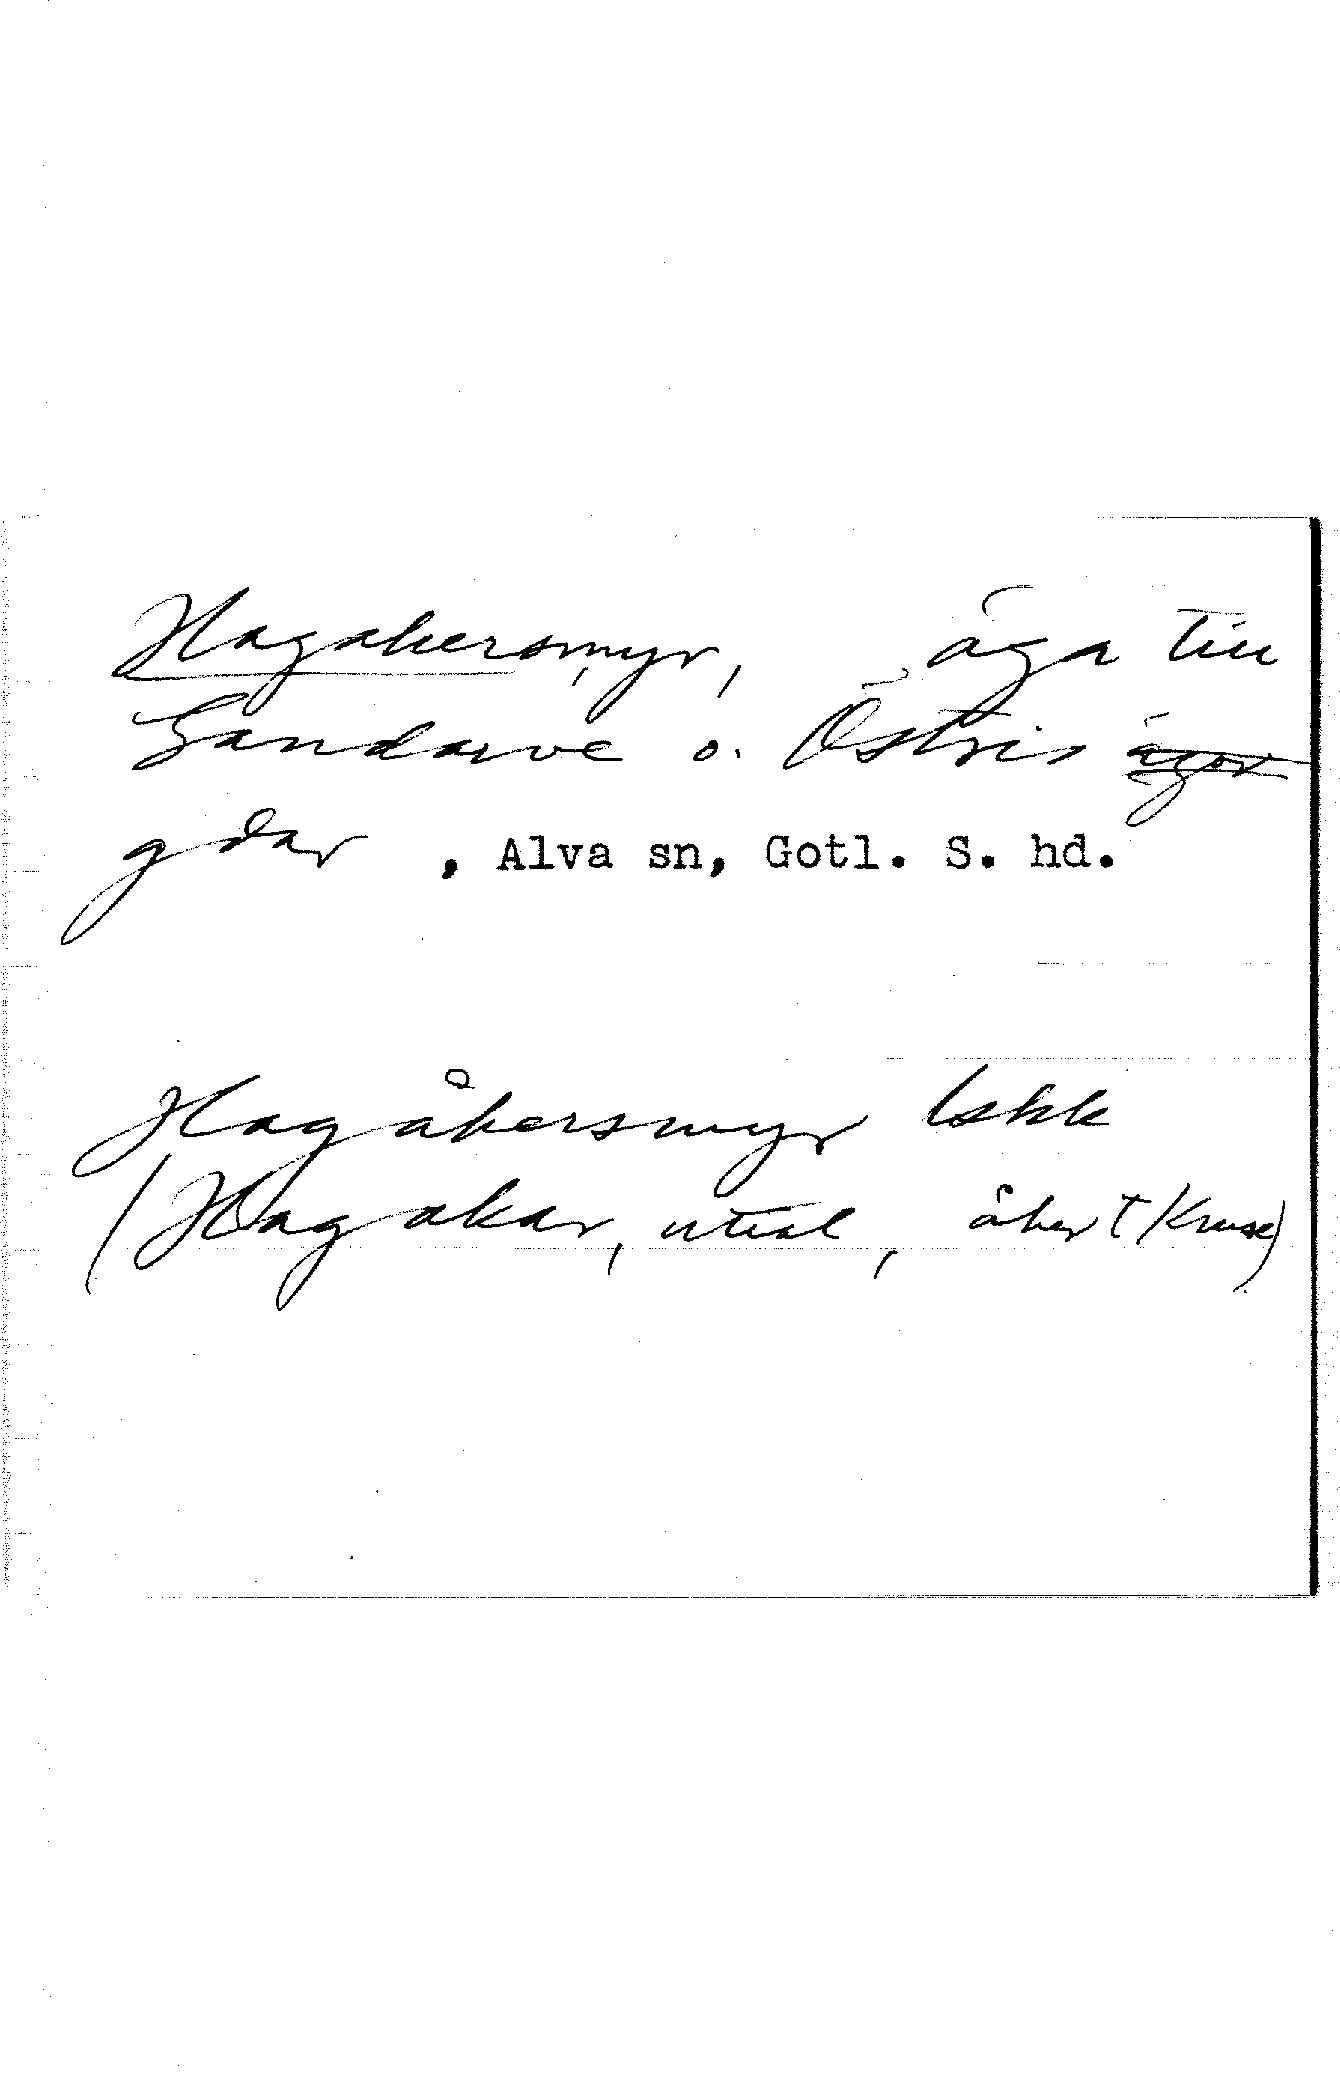 Hagakersmyr, äga till
Gandarve o. Östris ägor
gdar, Alva sn, Gotl. S. hd.
Hagåkersmyr lskk
(Hagakar, uttal, åker t Kruse)